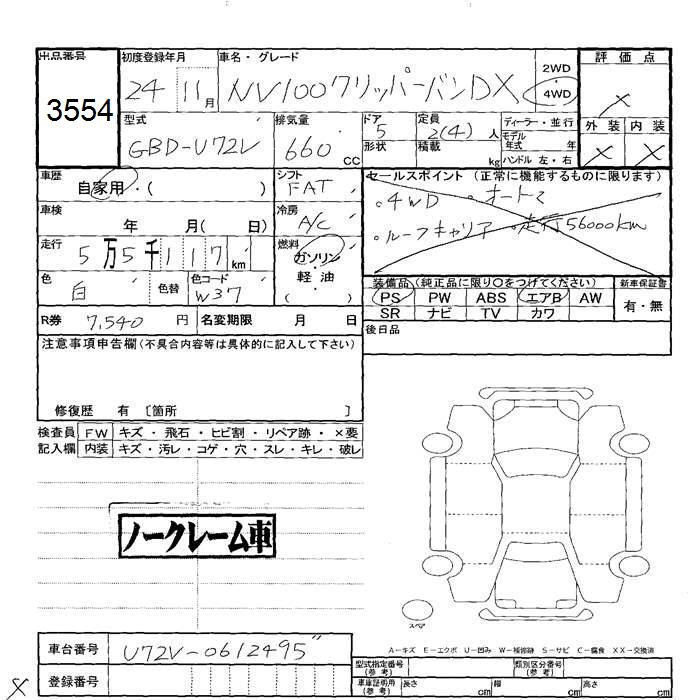 出品番号 初度登録年月 車名・グレード 2WD 評価点
3554 24 11月 NV100クリッパーバンDX 4WD ×
型式 排気量 ドア 定員 ディーラー・並行 外装 内装
GBD-U72V 660cc 5 2(4)人 モデル年式 年 × ×
形状 積載 kg ハンドル 左・右
車歴 シフト セールスポイント (正常に機能するものに限ります)
自家用・( ) FAT ・4WD ・オートマ
車検 冷房 ・ルーフキャリア ・走行56000km
年 月( 日) A/C
走行 燃料
5万5千117km ガソリン・軽油
色 色替 色コード 装備品(純正品に限り○をつけてください) 新車保証書
白 W37 PS PW ABS エアB AW 有・無
SR ナビ TV カワ
R券 7,540円 名変期限 月 日 後日品
注意事項申告欄(不具合内容等は具体的に記入して下さい)
修復歴 有 [箇所 ]
検査員 FW キズ・飛石・ヒビ割・リペア跡・×要
記入欄 内装 キズ・汚レ・コゲ・穴・スレ・キレ・破レ
ノークレーム車
スペア
A-キズ E-エクボ U-凹み W-補修跡 S-サビ C-腐食 XX-交換済
車台番号 U72V-0612495"
登録番号 型式指定番号(参考) 類別区分番号(参考)
× 車庫証明用(参考) 長さ cm 幅 cm 高さ cm